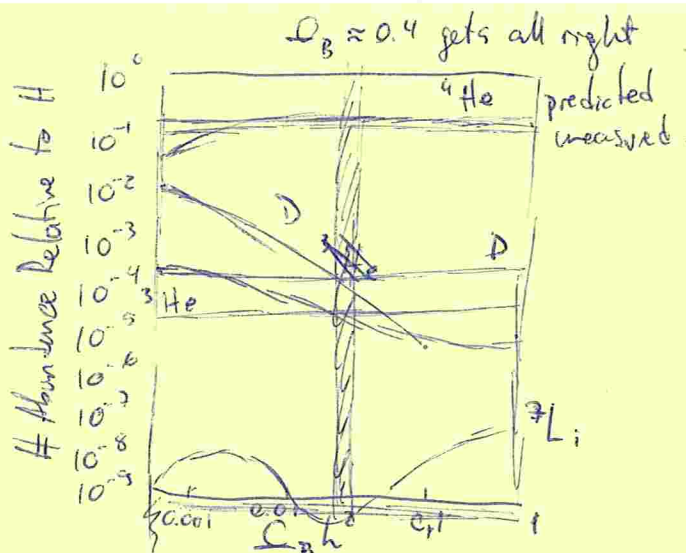 Ω_B ≈ 0.4 gets all right
# Abundance Relative to H
10^0
10^-1
10^-2
10^-3
10^-4
10^-5
10^-6
10^-7
10^-8
10^-9
^4He
predicted
measured
D
D
^3He
^7Li
0.001
0.01
0,1
1
Ω_B h